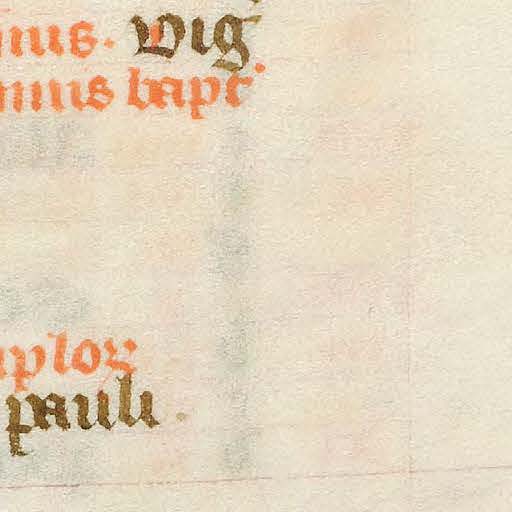 nus. Vig
nnus bapt
aploꝝ
pauli.